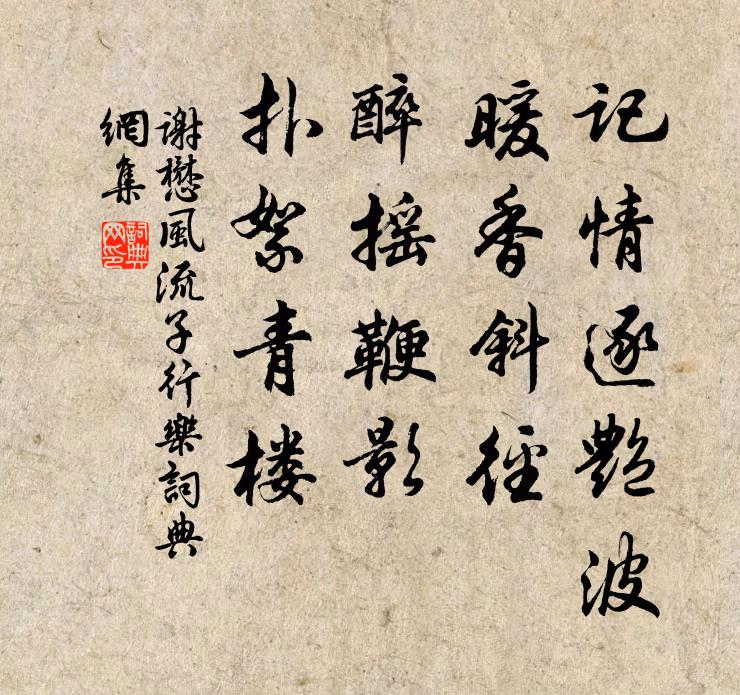 记情逐艷波
暖香斜徑
醉摇鞭影
扑絮青楼
谢懋風流子行樂詞典
網集
詞典
网印